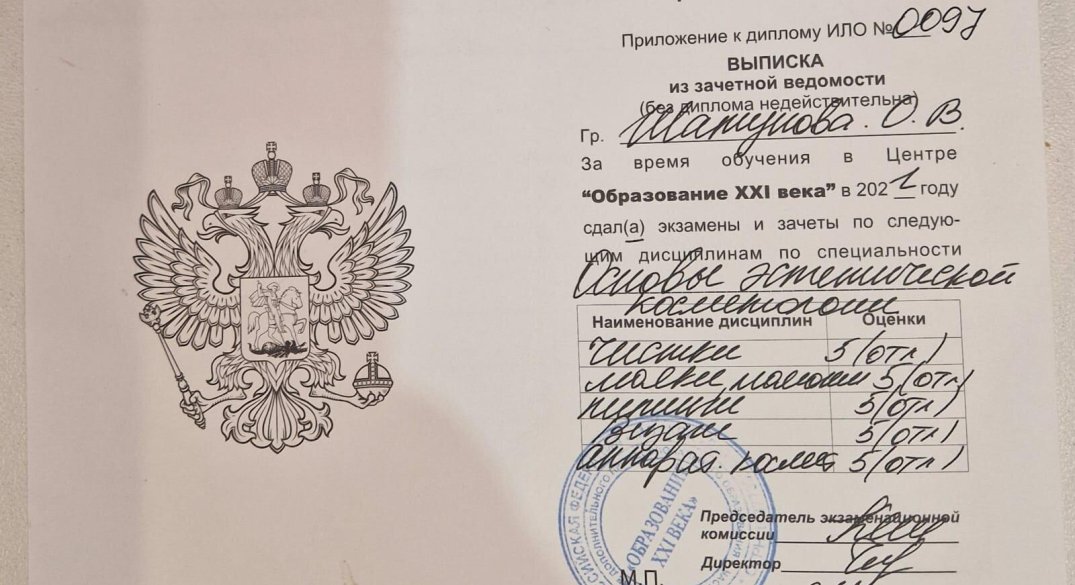 Приложение к диплому ИЛО № 0097
ВЫПИСКА
из зачетной ведомости
(без диплома недействительна)
Гр. О. В.
За время обучения в Центре
“Образование XXI века” в 2021 году
сдал(а) экзамены и зачеты по следую-
щим дисциплинам по специальности
Основы эстетической
косметологии
Наименование дисциплин Оценки
чистки 5 (отл)
маски, 5 (отл)
пилинги 5 (отл)
Визаж 5 (отл)
аппарат. космет 5 (отл)
Председатель экзаменационной
комиссии
Директор
М.П.
«ОБРАЗОВАНИЕ
XXI ВЕКА»